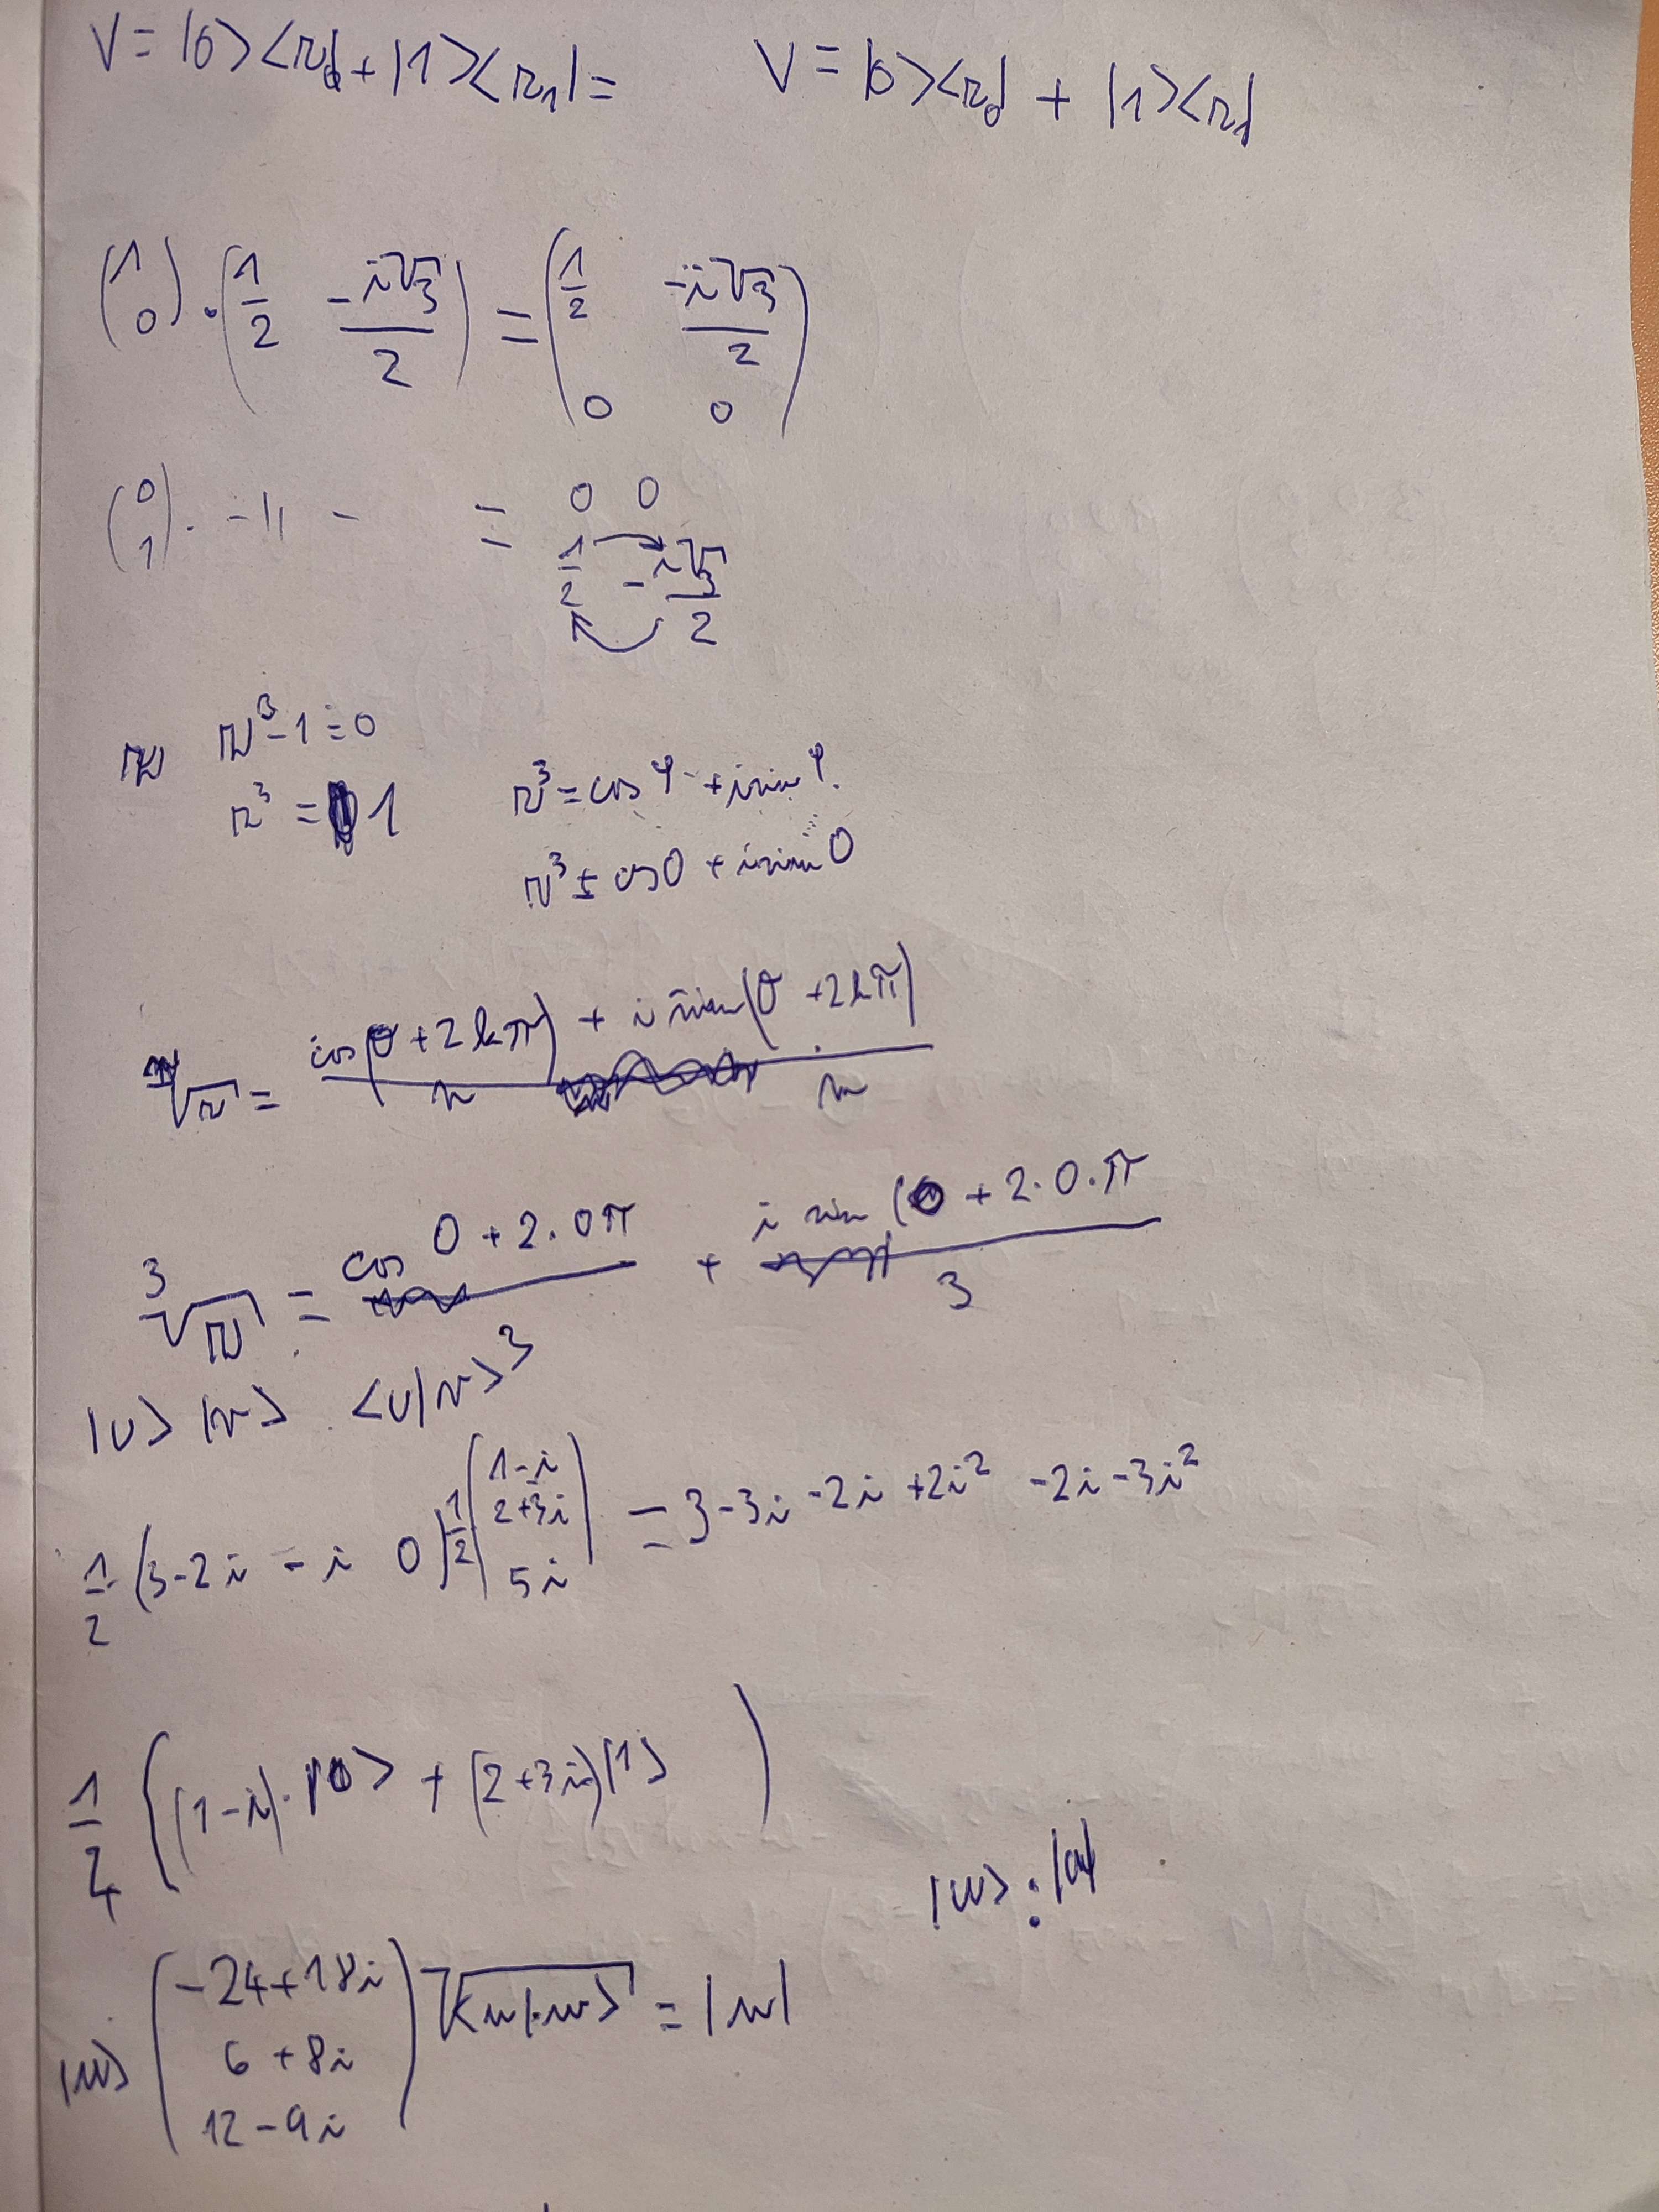 V = |0><r₀| + |1><r₁| = V = |0><r₀| + |1><r₁|
(1 0) · (1/2 -i√3/2) = (1/2 -i√3/2 0 0)
(0 1) · -11- = 0 0 1/2 -i√3/2
r³-1=0
r³ = 1 r³=cos φ + i sin φ
r³ = cos 0 + i sin 0
ⁿ√r = cos(0+2kπ)/n + i sin(0+2kπ)/n
³√r = cos 0+2·0π/3 + i sin (0+2·0·π/3
|v> |r> <v|r>
1/2 (3-2i -i 0) 1/2 (1-i 2+3i 5i) = 3-3i-2i+2i² -2i-3i²
{(1-i)·|0> + (2+3i)|1>)
|w> (-24+18i 6+8i 12-9i) √<w|w> = |w| |w> :